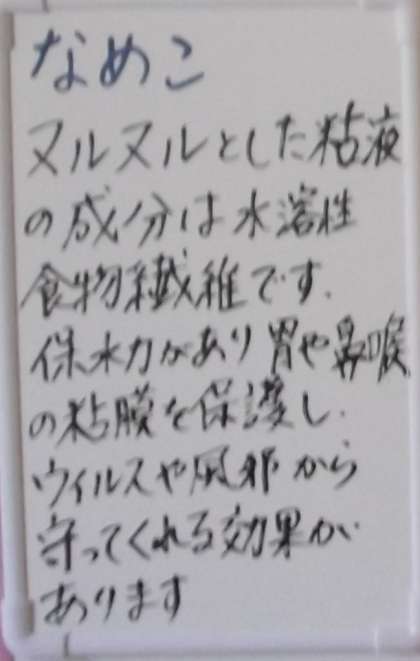 なめこ
ヌルヌルとした粘液
の成分は水溶性
食物繊維です.
保水力があり胃や鼻喉
の粘膜を保護し.
ウイルスや風邪から
守ってくれる効果が
あります